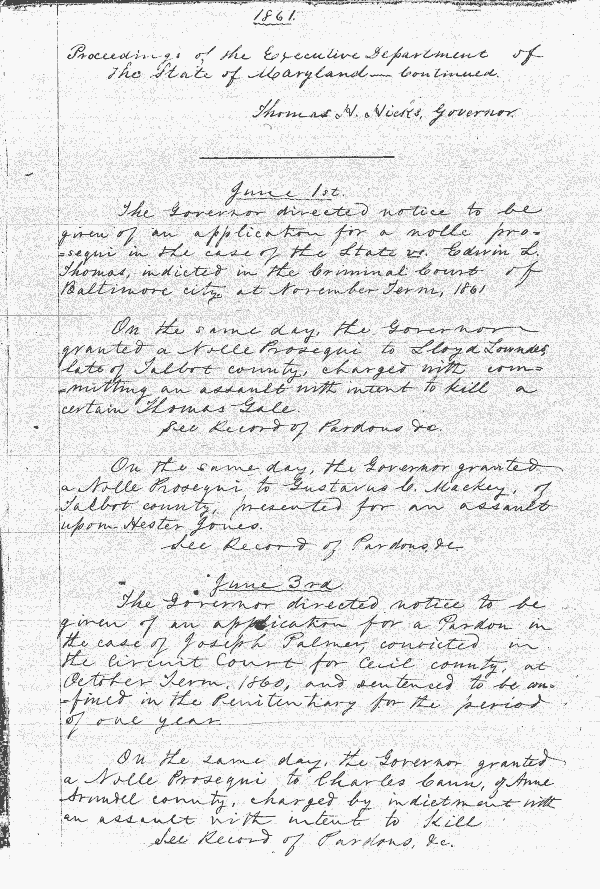 1861.
Proceedings of the Executive Department of
the State of Maryland — Continued.
Thomas H. Hicks, Governor.
June 1st.
The Governor directed notice to be
given of an application for a nolle pro=
=sequi in the case of the State vs. Edwin L.
Thomas, indicted in the Criminal Court of
Baltimore city at November Term, 1861
On the same day, the Governor
granted a Nolle Prosequi to Lloyd Lowndes
late of Talbot county, charged with com=
=mitting an assault with intent to kill a
certain Thomas Gale.
See Record of Pardons &c.
On the same day, the Governor granted
a Nolle Prosequi to Gustavus C. Mackey, of
Talbot county, presented for an assault
upon Hester Jones.
See Record of Pardons, &c
June 3rd
The Governor directed notice to be
given of an application for a Pardon in
the case of Joseph Palmer, convicted in
the Circuit Court for Cecil county, at
October Term, 1860, and sentenced to be con=
=fined in the Penitentiary for the period
of one year.
On the same day, the Governor granted
a Nolle Prosequi to Charles Cann, of Anne
Arundel county, charged by indictment with
an assault with intent to kill
See Record of Pardons, &c.